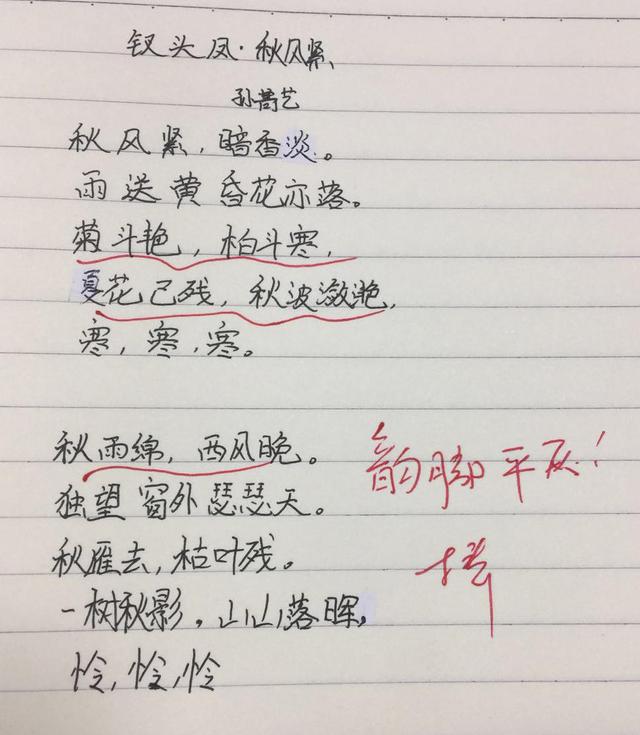 钗头凤·秋风紧
孙蒿艺
秋风紧，暗香淡。
雨送黄昏花亦落。
菊斗艳，柏斗寒，
夏花已残，秋波潋滟，
寒，寒，寒。
秋雨绵，西风晚。
独望窗外瑟瑟天。
秋雁去，枯叶残。
一树秋影，山山落晖，
怜，怜，怜
韵脚平仄！